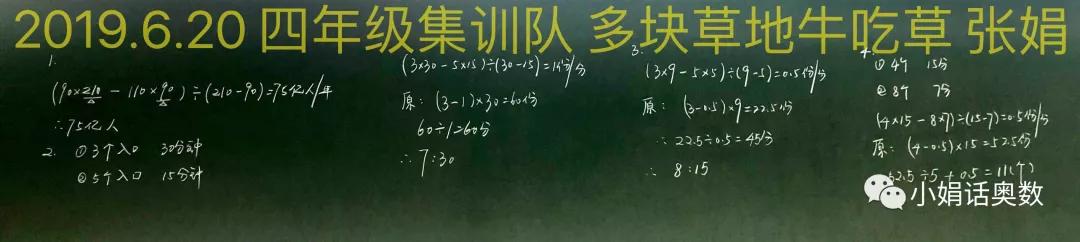 2019.6.20 四年级集训队 多块草地牛吃草 张娟
1.
(90×210 - 110×90)÷(210-90)=75亿人/年
∴75亿人
2. ①3个入口 30分钟
②5个入口 15分钟
(3×30-5×15)÷(30-15)=1份/分
原: (3-1)×30=60份
60÷1=60分
∴7:30
3.
(3×9-5×5)÷(9-5)=0.5份/分
原: (3-0.5)×9=22.5份
∴22.5÷0.5=45分
∴ 8:15
4.
①4个 15分
②8个 7分
(4×15-8×7)÷(15-7)=0.5份/分
原: (4-0.5)×15=52.5份
52.5÷5+0.5=11(个)
小娟话奥数